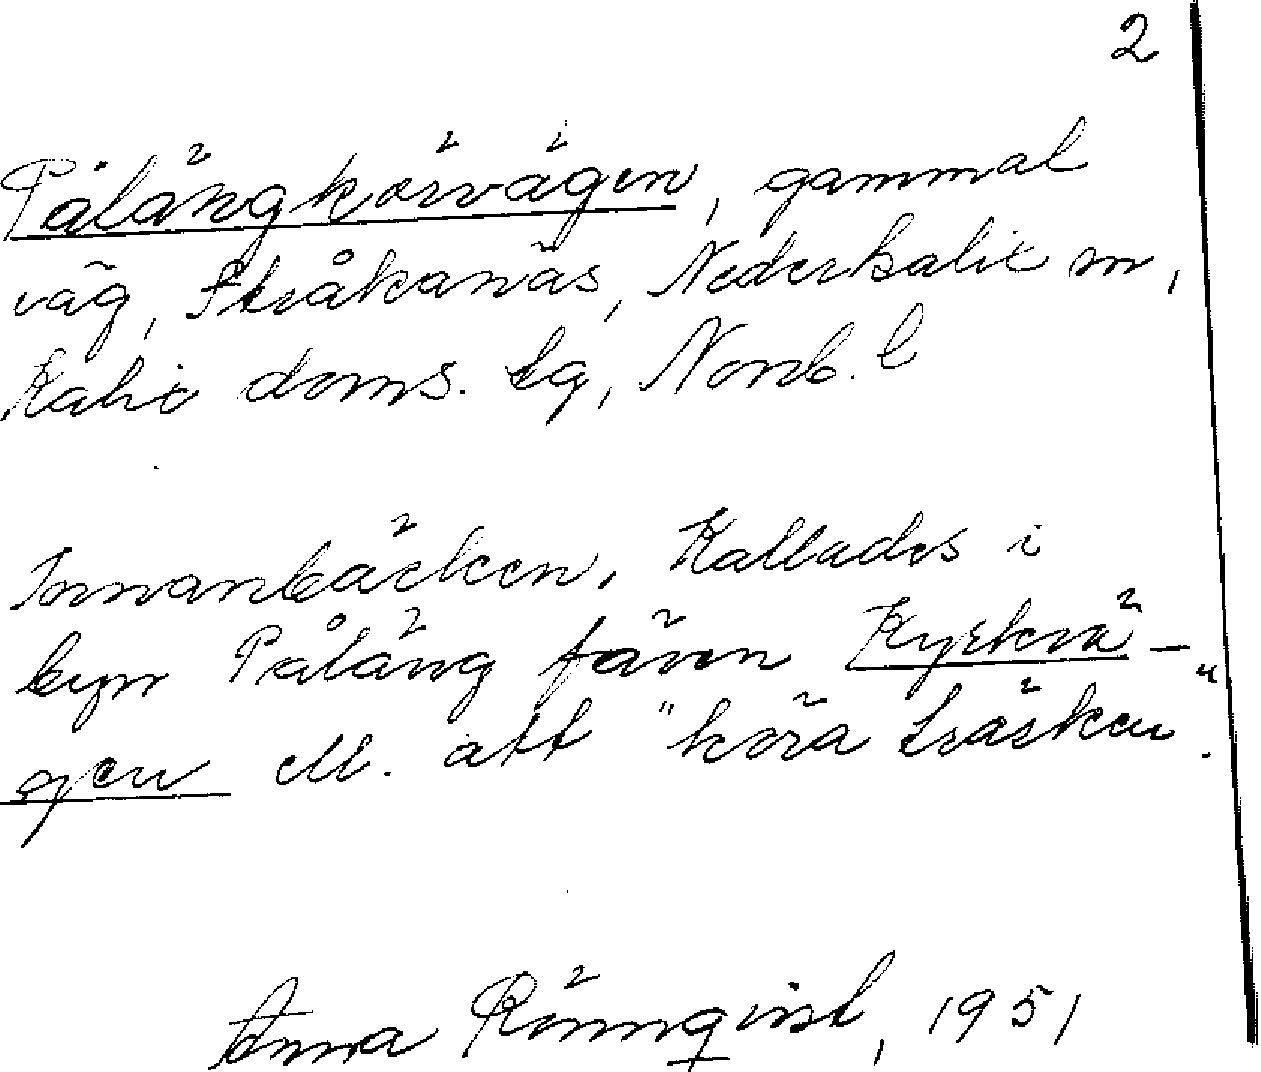 2
Pålängkörvägen, gammal
väg, Stråkanäs, Nederkalix sn,
Kalix doms. tg, Norrb. l
Innanbäcken, Kallades i
byn Påläng även Kyrkvä-
gen ell. att "köra träsken".
Anna Rönnqvist, 1951